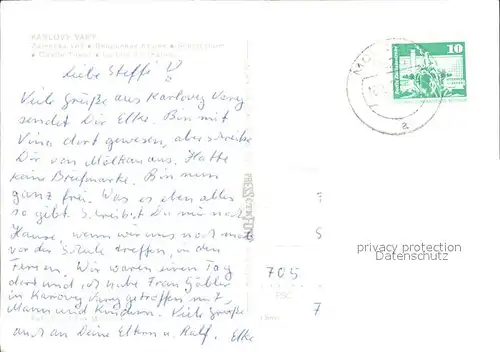 KARLOVY VARY
Liebe Steffi!
Viele Grüße aus Karlovy Vary
sendet Dir Elke. Bin mit
dort gewesen, aber schreibe
Dir von aus. Hatte
keine Briefmarke. Bin nun
ganz frei. Was es eben alles
so gibt. Schreibst Du mir nach
Hause, wenn wir uns noch mal
vor der Schule treffen, in den
Ferien. Wir waren einen Tag
dort und ich habe Frau Gäbler
in Karlovy Vary getroffen mit
Mann und Kindern. Viele Grüße
auch an Deine Eltern u. Ralf. Elke
10
a
privacy protection
Datenschutz
705
PSC
7